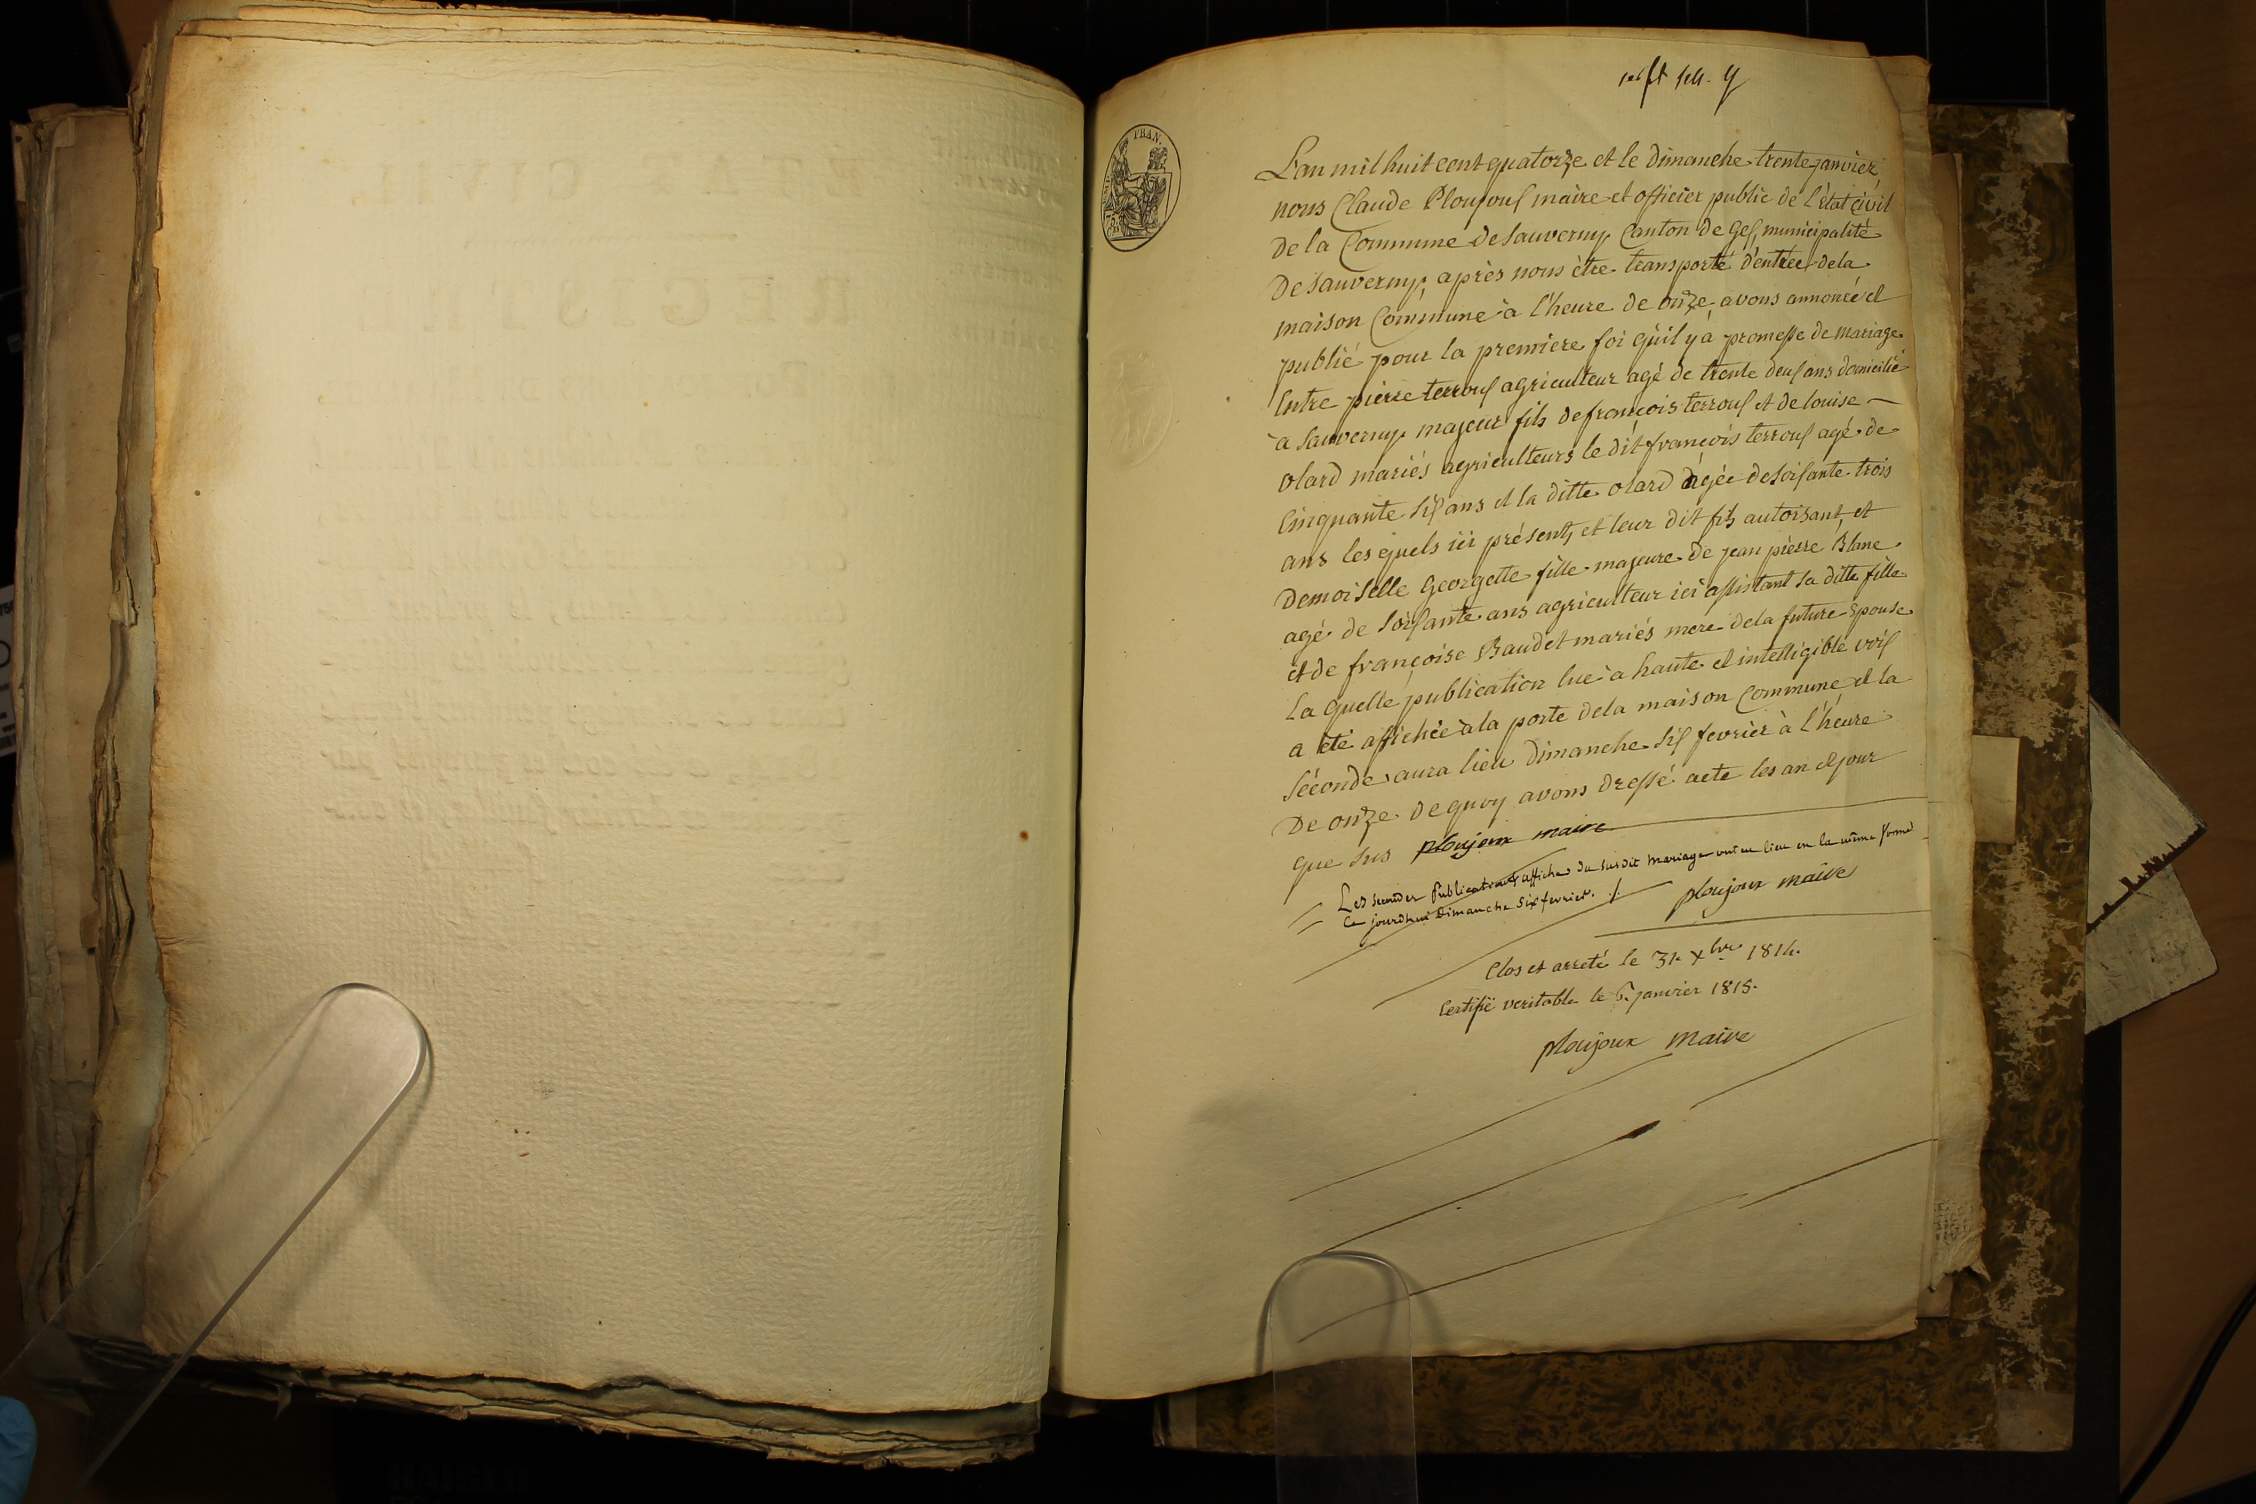 L'an mil huit cent quatorze et le dimanche trente janvier
nous Claude Ploujoux maire et officier public de l'état civil
de la Commune de Sauverny Canton de Gex, municipalité
de Sauverny, après nous être transporté d'entrée dela
maison Commune à l'heure de onze avons annoncé et
publié pour la premiere foi qu'il y a promesse de mariage
Entre pierre terroux agriculteur agé de trente deux ans domicilié
à Sauverny majeur fils de françois terroux et de louise
olard mariés agriculteurs le dit françois terroux agé de
Cinquante six ans et la ditte olard agée de soixante trois
ans les quels ici présents et leur dit fils autorisant, et
Demoiselle Georgette fille majeure de jean pierre Blanc
agé de soixante ans agriculteur ici assistant sa ditte fille
et de françoise Baudet mariés mere dela future Epouse
La quelle publication lue à haute et intelligible voix
a été affichée à la porte dela maison Commune et la
séconde aura lieu dimanche six fevrier à l'heure
De onze de quoy avons dressé acte les an et jour
que sus ploujoux maire
Les secondes Publications & affiches du susdit mariage ont eu lieu en la même forme
Ce jourdhui Dimanche six fevrier.
ploujoux maire
Clos et arreté le 31 xbre 1814.
Certifié veritable le 6 janvier 1815.
ploujoux maire